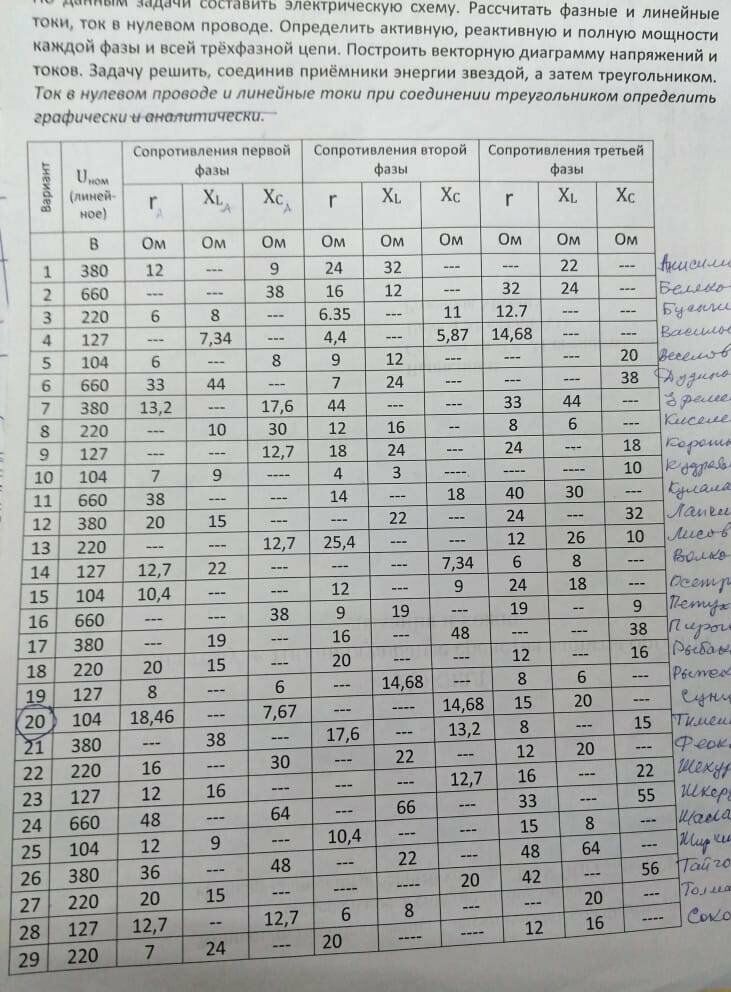 По данным задачи составить электрическую схему. Рассчитать фазные и линейные
токи, ток в нулевом проводе. Определить активную, реактивную и полную мощности
каждой фазы и всей трёхфазной цепи. Построить векторную диаграмму напряжений и
токов. Задачу решить, соединив приёмники энергии звездой, а затем треугольником.
Ток в нулевом проводе и линейные токи при соединении треугольником определить
графически и аналитически.
Вариант Uном (линейное) Сопротивления первой фазы Сопротивления второй фазы Сопротивления третьей фазы
r A XL A XC A r XL XC r XL XC
В Ом Ом Ом Ом Ом Ом Ом Ом Ом
1 380 12 --- 9 24 32 --- --- 22 ---
2 660 --- --- 38 16 12 --- 32 24 --- Беляко
3 220 6 8 --- 6.35 --- 11 12.7 --- ---
4 127 --- 7,34 --- 4,4 --- 5,87 14,68 --- --- Василье
5 104 6 --- 8 9 12 --- --- --- 20 Веселов
6 660 33 44 --- 7 24 --- --- --- 38 Дудино
7 380 13,2 --- 17,6 44 --- --- 33 44 --- Ефреме
8 220 --- 10 30 12 16 -- 8 6 --- Киселе
9 127 --- --- 12,7 18 24 --- 24 --- 18
10 104 7 9 ---- 4 3 ---- ---- ---- 10 Кудряв
11 660 38 --- --- 14 --- 18 40 30 ---
12 380 20 15 --- --- 22 --- 24 --- 32 Лапки
13 220 --- --- 12,7 25,4 --- --- 12 26 10 Лисов
14 127 12,7 22 --- --- --- 7,34 6 8 --- Волко
15 104 10,4 --- --- 12 --- 9 24 18 --- Осетр
16 660 --- --- 38 9 19 --- 19 -- 9 Петух
17 380 --- 19 --- 16 --- 48 --- --- 38 Пирог
18 220 20 15 --- 20 --- --- 12 --- 16 Рыбак
19 127 8 --- 6 --- 14,68 --- 8 6 --- Рыжек
20 104 18,46 --- 7,67 --- ---- 14,68 15 20 ---
21 380 --- 38 --- 17,6 --- 13,2 8 --- 15 Тимеш
22 220 16 --- 30 --- 22 --- 12 20 --- Феок
23 127 12 16 --- --- --- 12,7 16 --- 22 Шехур
24 660 48 --- 64 --- 66 --- 33 --- 55
25 104 12 9 --- 10,4 --- --- 15 8 ---
26 380 36 --- 48 --- 22 --- 48 64 ---
27 220 20 15 --- ---- ---- 20 42 --- 56 Тайго
28 127 12,7 -- 12,7 6 8 --- --- 20 --- Толма
29 220 7 24 --- 20 ---- ---- 12 16 ---- Соко